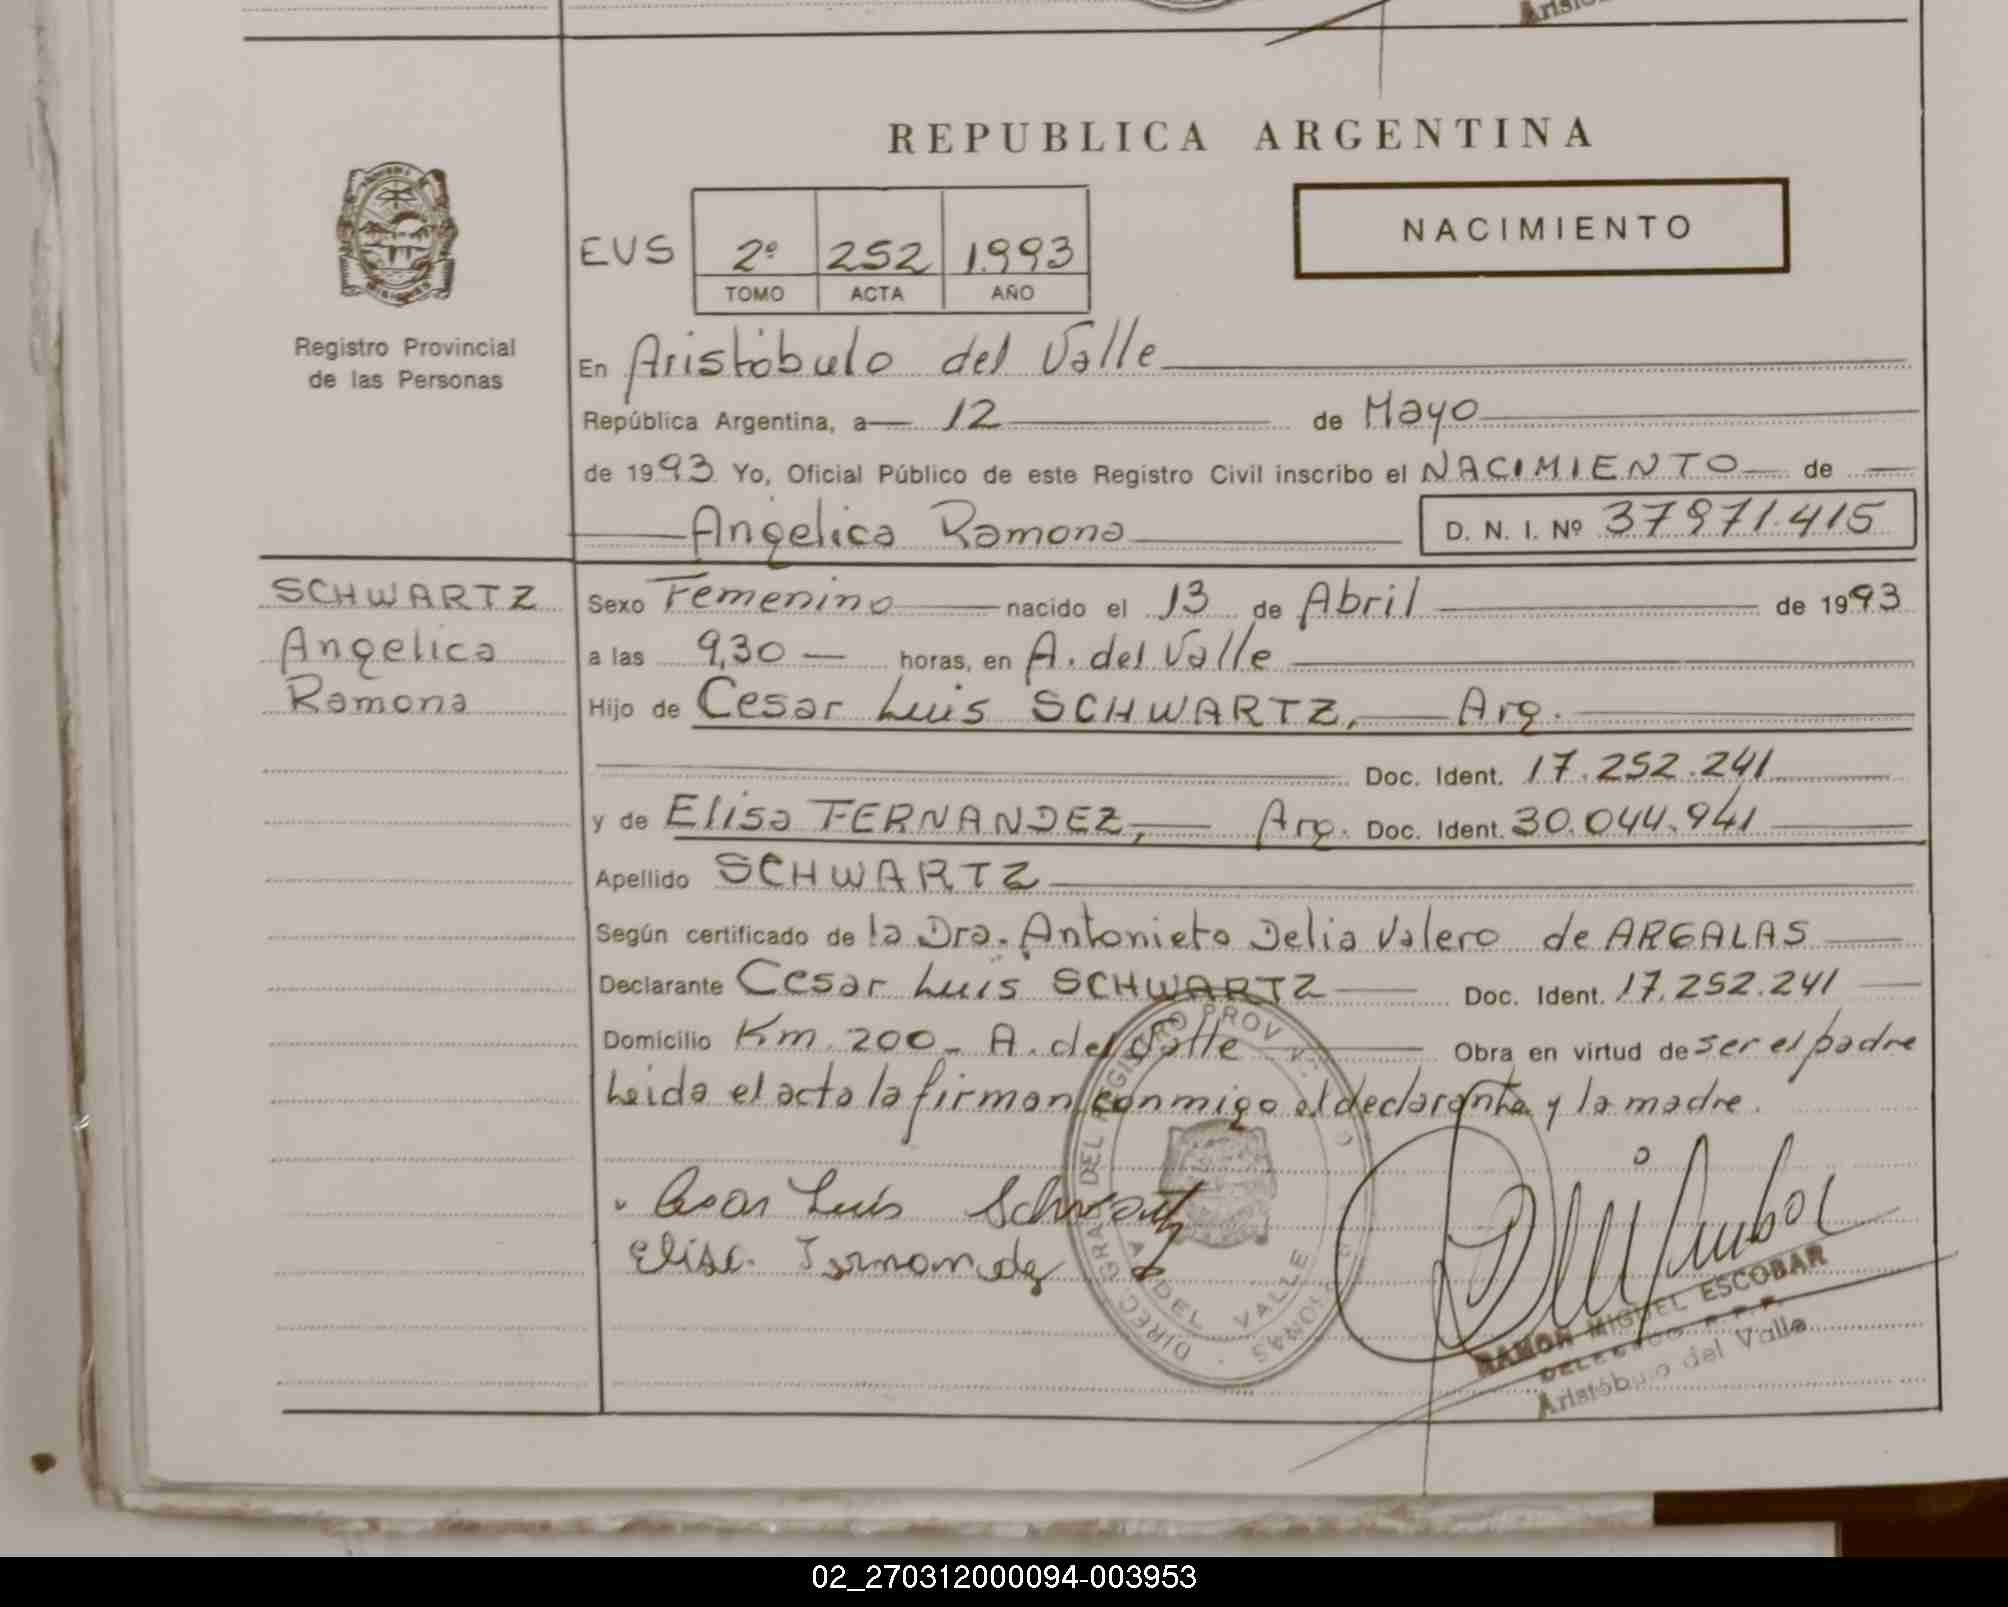 REPUBLICA ARGENTINA
NACIMIENTO
EVS 2º 252 1.993
TOMO ACTA AÑO
Registro Provincial
de las Personas
En Aristóbulo del Valle
República Argentina, a 12 de Mayo
de 1993 Yo, Oficial Público de este Registro Civil inscribo el NACIMIENTO de
Angelica Ramona D. N. I. Nº 37971.415
SCHWARTZ
Angelica
Ramona
Sexo Femenino nacido el 13 de Abril de 1993
a las 9,30 horas, en A. del Valle
Hijo de Cesar Luis SCHWARTZ, Arg.
Doc. Ident. 17.252.241
y de Elisa FERNANDEZ, Arg. Doc. Ident. 30.044.941
Apellido SCHWARTZ
Según certificado de la Dra. Antonieta Delia Valero de ARGALAS
Declarante Cesar Luis SCHWARTZ Doc. Ident. 17.252.241
Domicilio Km. 200 - A. del Valle Obra en virtud de ser el padre
Leida el acta la firman conmigo el declarante y la madre.
Cesar Luis Schwartz
Elisa Fernandez
DIREC. GRAL DEL REGISTRO PROV
A. DEL VALLE
RAMON MIGUEL ESCOBAR
DELEGADO R.P.P.
Aristóbulo del Valle
02_270312000094-003953